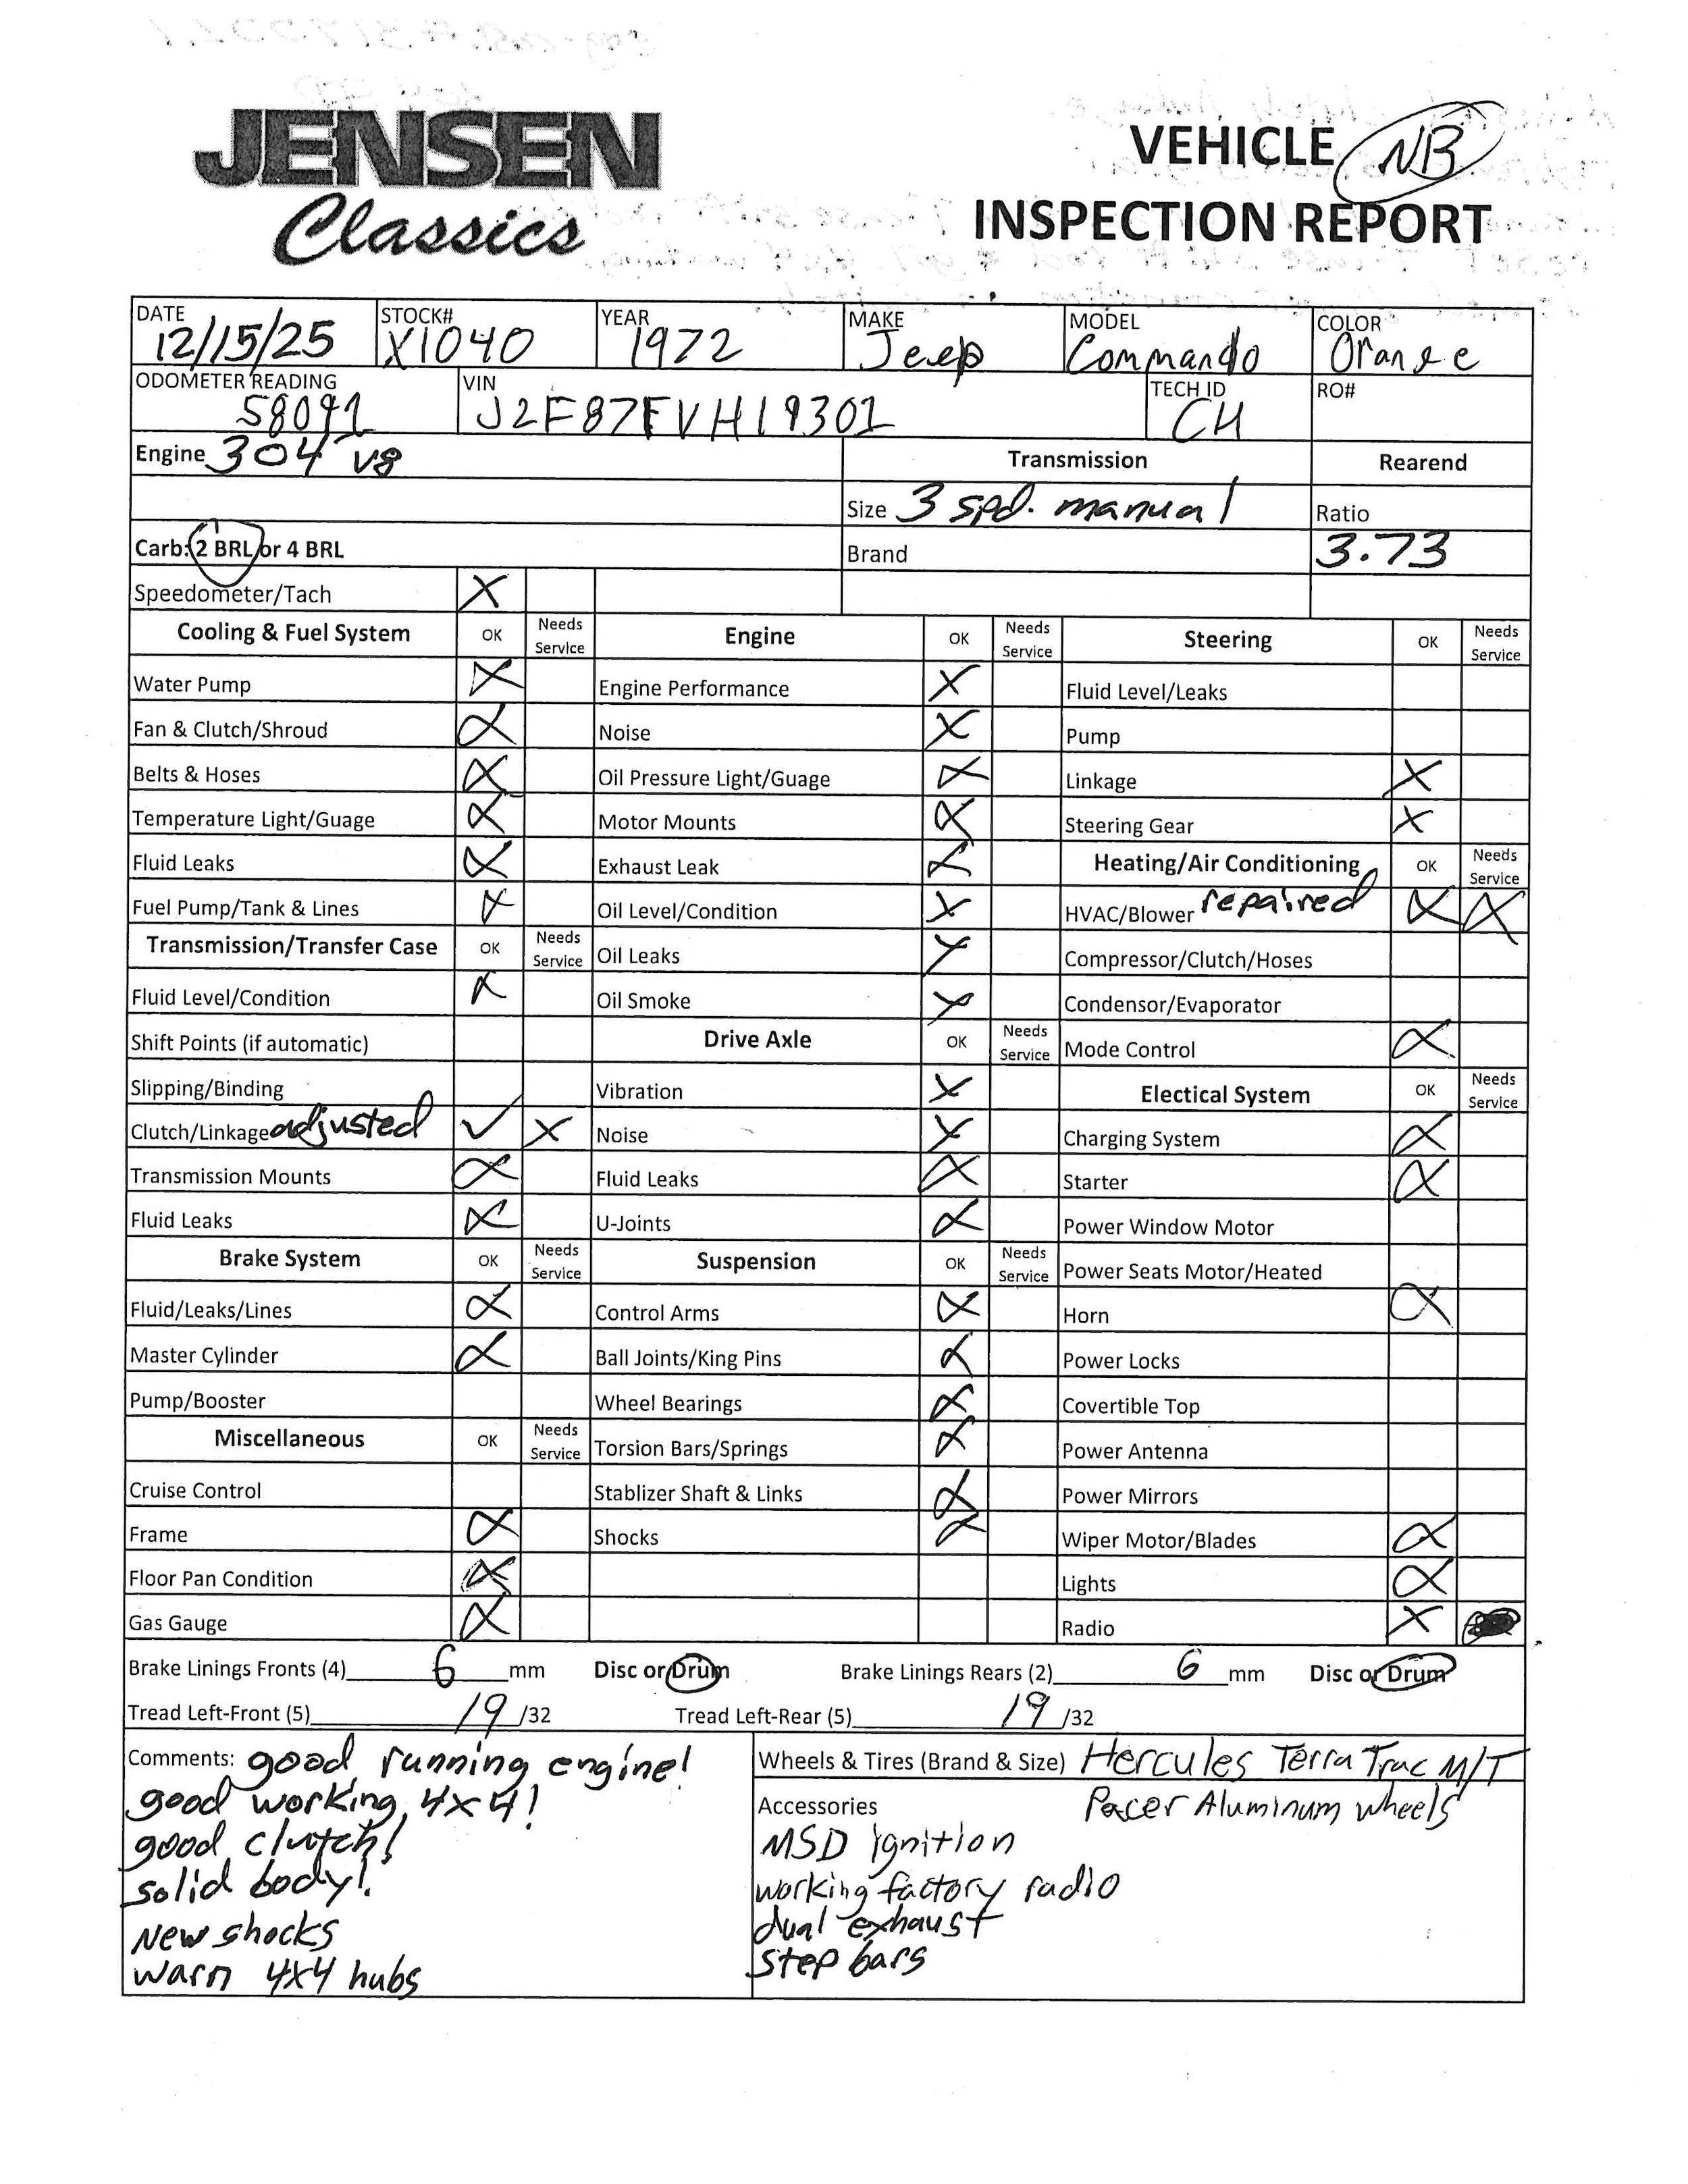 JENSEN
Classics
VEHICLE NB
INSPECTION REPORT
DATE 12/15/25 STOCK# X1040 YEAR 1972 MAKE Jeep MODEL Commando COLOR Orange
ODOMETER READING 58091 VIN J2F87FVH19301 TECH ID CH RO#
Engine 304 V8 Transmission Rearend
Size 3 spd. manual Ratio
Carb: 2 BRL or 4 BRL Brand 3.73
Speedometer/Tach X
Cooling & Fuel System OK Needs Service Engine OK Needs Service Steering OK Needs Service
Water Pump X Engine Performance X Fluid Level/Leaks
Fan & Clutch/Shroud X Noise X Pump
Belts & Hoses X Oil Pressure Light/Guage X Linkage X
Temperature Light/Guage X Motor Mounts X Steering Gear X
Fluid Leaks X Exhaust Leak X Heating/Air Conditioning OK Needs Service
Fuel Pump/Tank & Lines X Oil Level/Condition X HVAC/Blower repaired X X
Transmission/Transfer Case OK Needs Service Oil Leaks X Compressor/Clutch/Hoses
Fluid Level/Condition X Oil Smoke X Condensor/Evaporator
Shift Points (if automatic) Drive Axle OK Needs Service Mode Control X
Slipping/Binding Vibration X Electical System OK Needs Service
Clutch/Linkage adjusted ✓ X Noise X Charging System X
Transmission Mounts X Fluid Leaks X Starter X
Fluid Leaks X U-Joints X Power Window Motor
Brake System OK Needs Service Suspension OK Needs Service Power Seats Motor/Heated
Fluid/Leaks/Lines X Control Arms X Horn X
Master Cylinder X Ball Joints/King Pins X Power Locks
Pump/Booster Wheel Bearings X Covertible Top
Miscellaneous OK Needs Service Torsion Bars/Springs X Power Antenna
Cruise Control Stablizer Shaft & Links X Power Mirrors
Frame X Shocks X Wiper Motor/Blades X
Floor Pan Condition X Lights X
Gas Gauge X Radio X
Brake Linings Fronts (4) 6 mm Disc or Drum Brake Linings Rears (2) 6 mm Disc or Drum
Tread Left-Front (5) 19 /32 Tread Left-Rear (5) 19 /32
Comments: good running engine!
good working 4x4!
good clutch!
solid body!
New shocks
warn 4x4 hubs
Wheels & Tires (Brand & Size) Hercules Terra Trac M/T
Pacer Aluminum wheels
Accessories
MSD ignition
working factory radio
dual exhaust
step bars